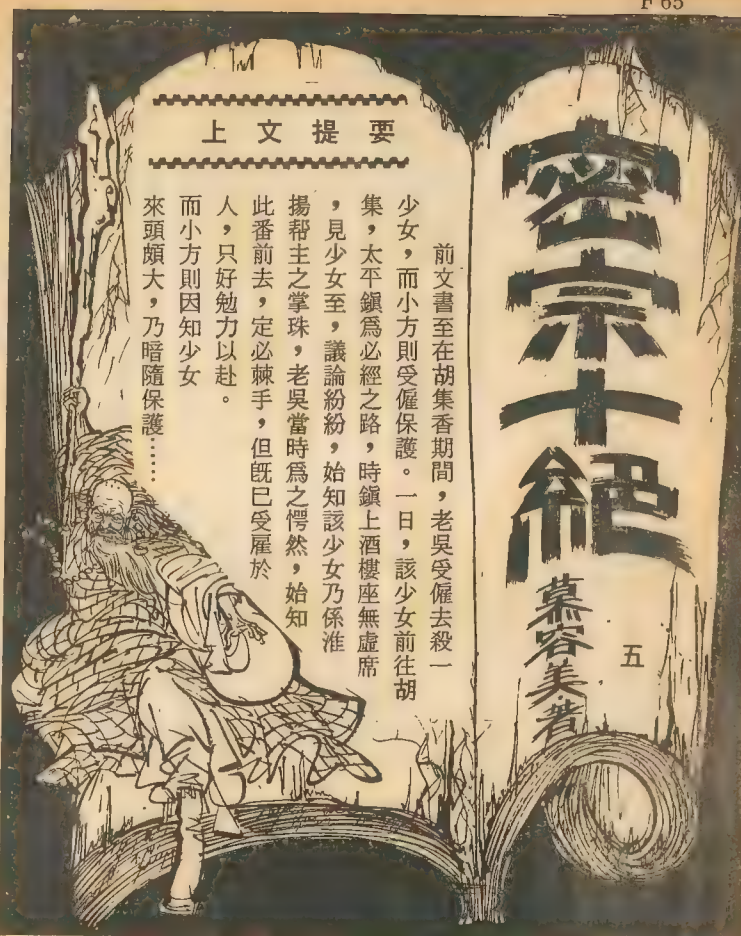 F 65
密宗十絕
五
慕容美著
上文提要
前文書至在胡集香期間，老吳受僱去殺一
少女，而小方則受僱保護。一日，該少女前往胡
集，太平鎮爲必經之路，時鎮上酒樓座無虛席
，見少女至，議論紛紛，始知該少女乃係淮
揚帮主之掌珠，老吳當時爲之愕然，始知
此番前去，定必棘手，但旣已受雇於
人，只好勉力以赴。
而小方則因知少女
來頭頗大，乃暗隨保護……